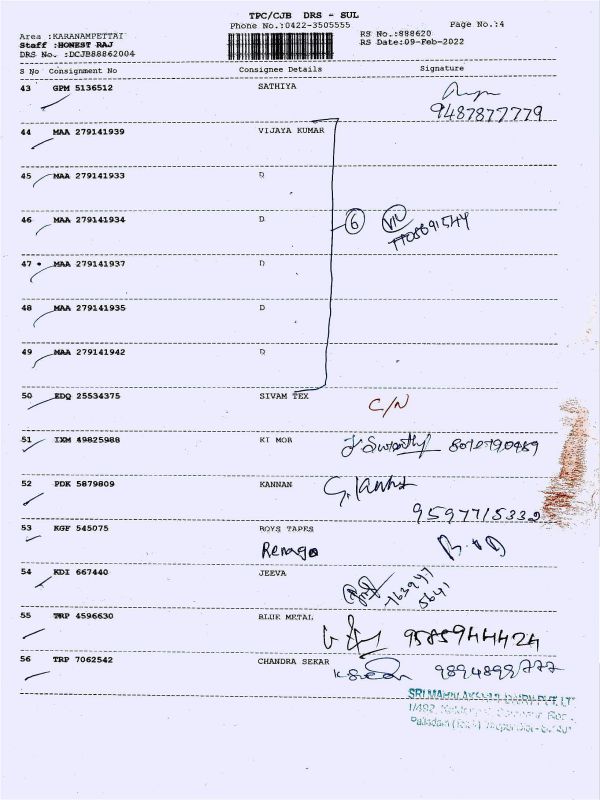 TPC/CJB DRS - SUL
Phone No.:0422-3505555
Page No.:4
Area :KARANAMPETTAI
Staff :HONEST RAJ
DRS No. :DCJB88862004
RS No.:888620
RS Date:09-Feb-2022
S No Consignment No Consignee Details Signature
43 GPM 5136512 SATHIYA
9487877779
44 MAA 279141939 VIJAYA KUMAR
45 MAA 279141933 D
46 MAA 279141934 D
6
47 MAA 279141937 D
48 MAA 279141935 D
49 MAA 279141942 D
50 EDQ 25534375 SIVAM TEX
C/N
51 IXM 49825988 KI MOB
52 PDK 5879809 KANNAN
9597715332
53 KGF 545075 ROYS TAPES
54 KDI 667440 JEEVA
55 TRP 4596630 BLUE METAL
9585944424
56 TRP 7062542 CHANDRA SEKAR
9894899777